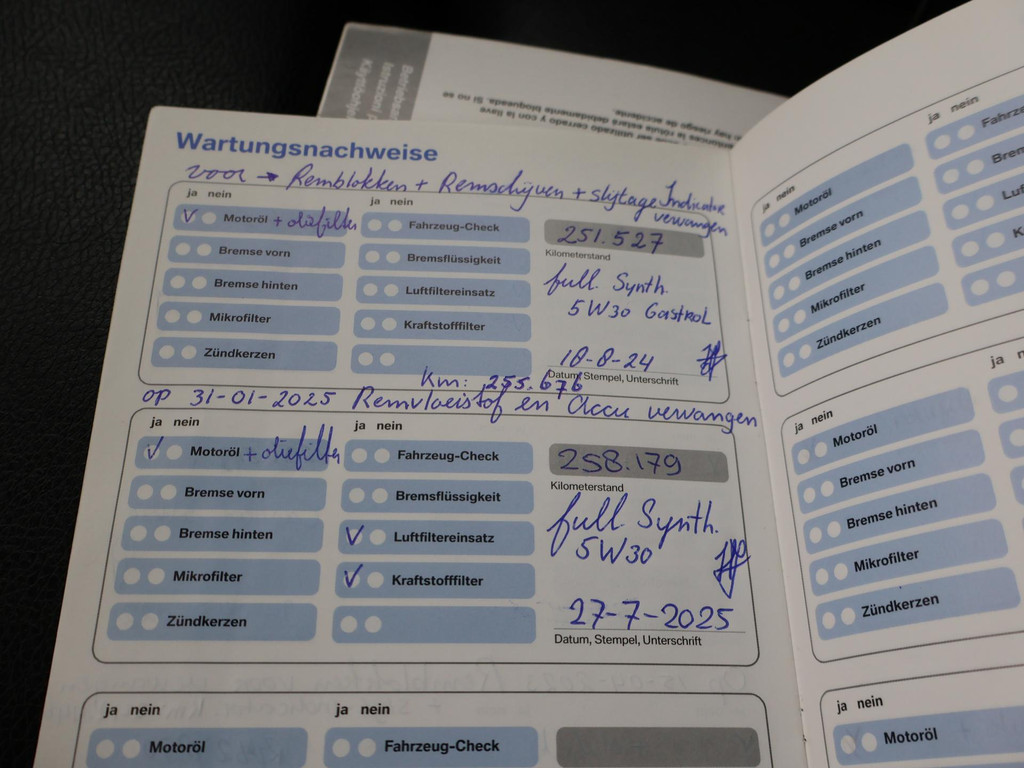 Wartungsnachweise
voor → Remblokken + Remschijven + slijtage Indicator
verwangen
ja nein
ja nein
Motoröl + oliefilter
Fahrzeug-Check
251.527
Kilometerstand
Bremse vorn
Bremsflüssigkeit
full Synth.
5W30 Castrol
Bremse hinten
Luftfiltereinsatz
Mikrofilter
Kraftstofffilter
Zündkerzen
18-8-24
Datum, Stempel, Unterschrift
Km: 255.676
op 31-01-2025 Remvloeistof en Accu verwangen
ja nein
ja nein
Motoröl + oliefilter
Fahrzeug-Check
258.179
Kilometerstand
Bremse vorn
Bremsflüssigkeit
full Synth.
5W30
Bremse hinten
Luftfiltereinsatz
Mikrofilter
Kraftstofffilter
Zündkerzen
27-7-2025
Datum, Stempel, Unterschrift
ja nein
ja nein
Motoröl
Fahrzeug-Check
ja nein
ja nein
Motoröl
Fahrz
Bremse vorn
Brem
Bremse hinten
Luf
Mikrofilter
K
Zündkerzen
ja nein
ja
Motoröl
Bremse vorn
Bremse hinten
Mikrofilter
Zündkerzen
ja nein
Motoröl